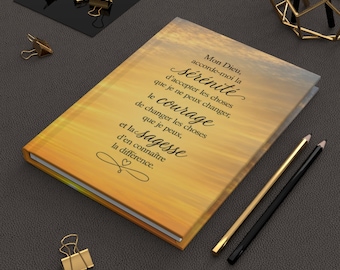 Mon Dieu,
accorde-moi la
sérénité
d'accepter les choses
que je ne peux changer,
le courage
de changer les choses
que je peux,
et la sagesse
d'en connaître
la différence.